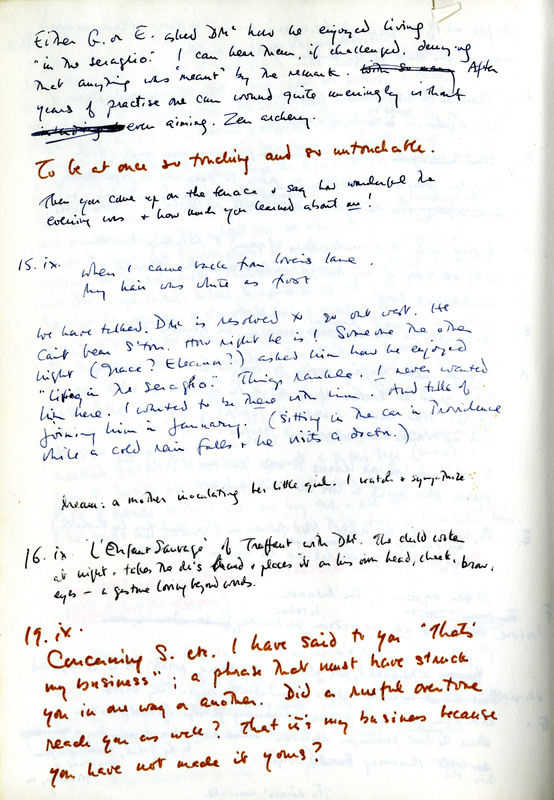 Either G. or E. asked DMc how he enjoyed living
"in the seraglio." I can hear them, if challenged, denying
that anything was "meant" by the remark. With so many After
years of practise one can wound quite unerringly without
even aiming. Zen archery.
To be at once so touching and so untouchable.
Then you came up on the terrace & say how wonderful the
evening was & how much you learned about me!
15. ix. When I came back from lovers lane
My hair was white as frost
We have talked. DMc is resolved to go out west. He
can't bear S'ton. How right he is! Someone the other
night (Grace? Eleanor?) asked him how he enjoyed
"living in the seraglio." Things rankle. I never wanted
him here. I wanted to be there with him. And talk of
joining him in January. (Sitting in the car in Providence
while a cold rain falls & he visits a doctor.)
Dream: a mother inoculating her little girl. I watch & sympathize.
16. ix. 'L'Enfant Sauvage' of Truffaut with DMc. The child woken
at night, takes the dr's hand & places it on his own head, cheek, brow,
eyes — a gesture loving beyond words.
19. ix.
Concerning S. etc. I have said to you "That's
my business"; a phrase that must have struck
you in one way or another. Did a rueful overtone
reach you as well? That it's my business because
you have not made it yours?